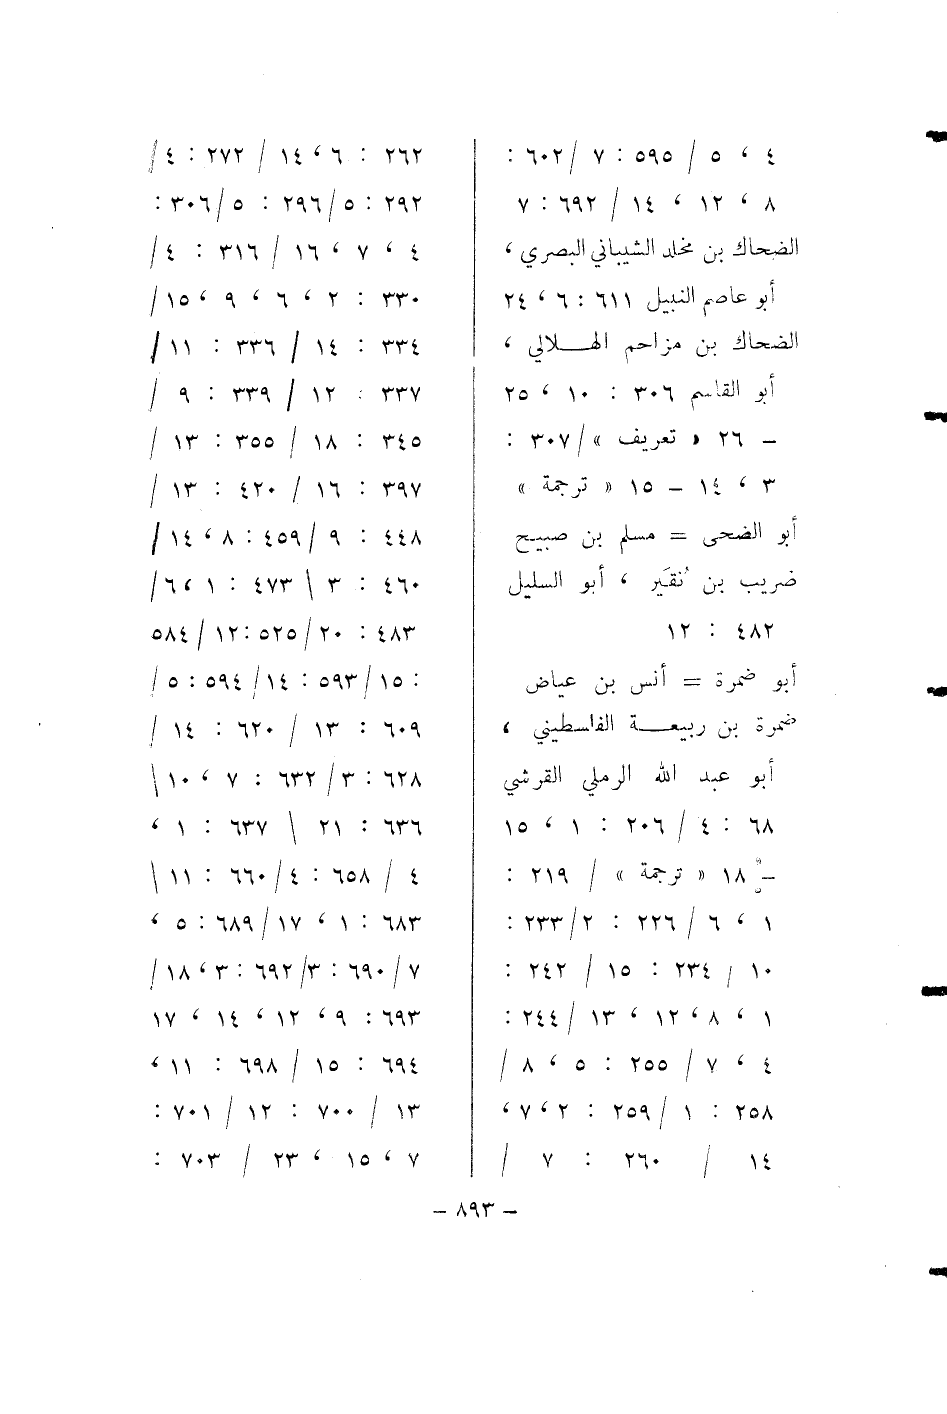 ٤ ، ٥ / ٥٩٥ : ٧ / ٦٠٢ :
٨ ، ١٢ ، ١٤ / ٦٩٢ : ٧
الضحاك بن مخلد الشيباني البصري ،
أبو عاصم النبيل ٦١١ : ٦ ، ٢٤
الضحاك بن مزاحم الهــلالي ،
أبو القاسم ٣٠٦ : ١٠ ، ٢٥
– ٢٦ « تعريف » / ٣٠٧ :
٣ ، ١٤ – ١٥ « ترجمة »
أبو الضحى = مسلم بن صبيح
ضريب بن نُقَير ، أبو السليل
٤٨٢ : ١٢
أبو ضمرة = أنس بن عياض
ضمرة بن ربيعــة الفلسطيني ،
أبو عبد الله الرملي القرشي
٦٨ : ٤ / ٢٠٦ : ١ ، ١٥
– ١٨ « ترجمة » / ٢١٩ :
١ ، ٦ / ٢٢٦ : ٢ / ٢٣٣ :
١٠ / ٢٣٤ : ١٥ / ٢٤٢ :
١ ، ٨ ، ١٢ ، ١٣ / ٢٤٤ :
٤ ، ٧ / ٢٥٥ : ٥ ، ٨ /
٢٥٨ : ١ / ٢٥٩ : ٢ ، ٧ ،
١٤ / ٢٦٠ : ٧ /
٢٦٢ : ٦ ، ١٤ / ٢٧٢ : ٤ /
٢٩٢ : ٥ / ٢٩٦ : ٥ / ٣٠٦ :
٤ ، ٧ ، ١٦ / ٣١٦ : ٤ /
٣٣٠ : ٢ ، ٦ ، ٩ ، ١٥ /
٣٣٤ : ١٤ / ٣٣٦ : ١١ /
٣٣٧ : ١٢ / ٣٣٩ : ٩ /
٣٤٥ : ١٨ / ٣٥٥ : ١٣ /
٣٩٧ : ١٦ / ٤٢٠ : ١٣ /
٤٤٨ : ٩ / ٤٥٩ : ٨ ، ١٤ /
٤٦٠ : ٣ \ ٤٧٣ : ١ ، ٦ /
٤٨٣ : ٢٠ / ٥٢٥ : ١٢ / ٥٨٤
: ١٥ / ٥٩٣ : ١٤ / ٥٩٤ : ٥ /
٦٠٩ : ١٣ / ٦٢٠ : ١٤ /
٦٢٨ : ٣ / ٦٣٢ : ٧ ، ١٠ \
٦٣٦ : ٢١ \ ٦٣٧ : ١ ،
٤ / ٦٥٨ : ٤ / ٦٦٠ : ١١ \
٦٨٣ : ١ ، ١٧ / ٦٨٩ : ٥ ،
٧ / ٦٩٠ : ٣ / ٦٩٢ : ٣ ، ١٨ /
٦٩٣ : ٩ ، ١٢ ، ١٤ ، ١٧
٦٩٤ : ١٥ / ٦٩٨ : ١١ ،
١٣ / ٧٠٠ : ١٢ / ٧٠١ :
٧ ، ١٥ ، ٢٣ / ٧٠٣ :
– ٨٩٣ –